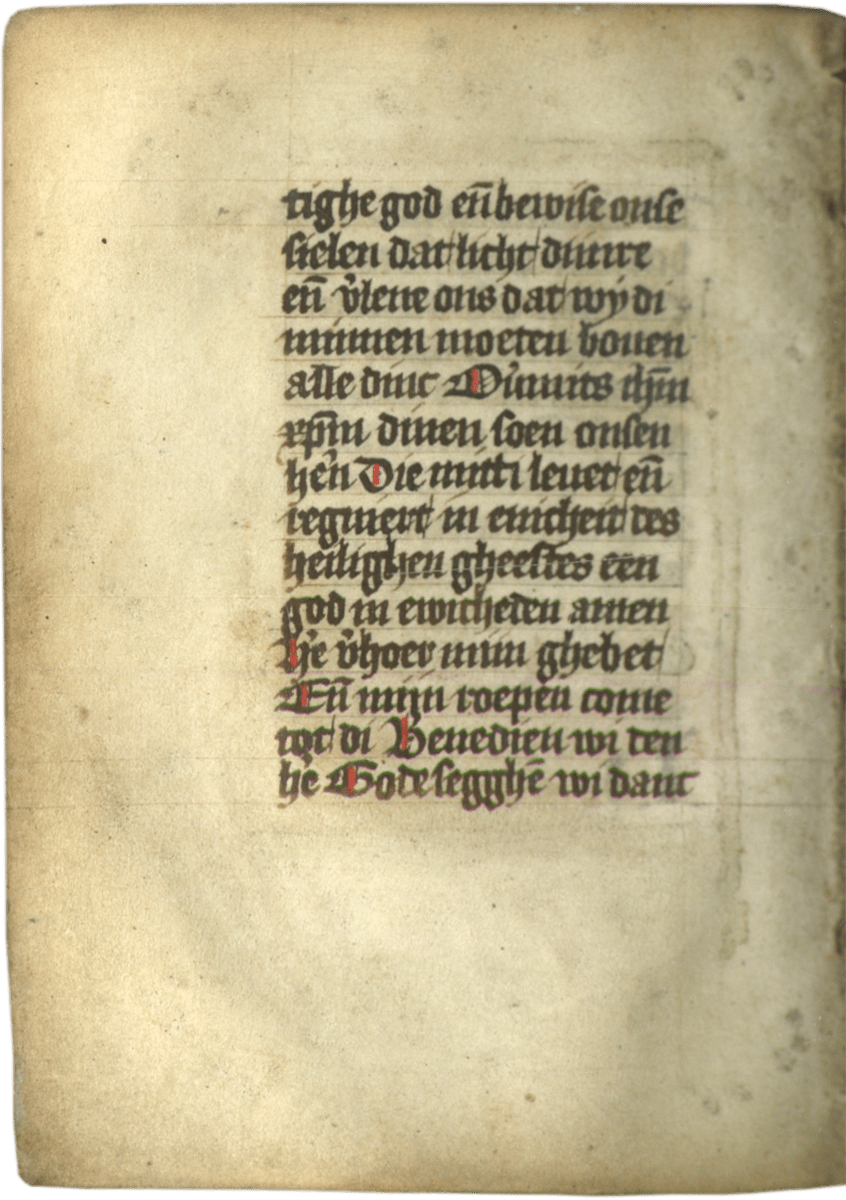 tighe god en̄ bewise onse
sielen dat licht dinre
en̄ v̉lene ons dat wy di
minnen moeten bouen
alle dinc Ou̾mits ih̄m
xp̄m dinen soen onsen
he̾n Die mitti leuet en̄
regniert in enicheit des
heilighen gheestes een
god in ewicheden amen
He̾ v̉hoer miin ghebet
En̄ mijn roepen come
tot di Benedien wi den
hē Gode segghē wi danc